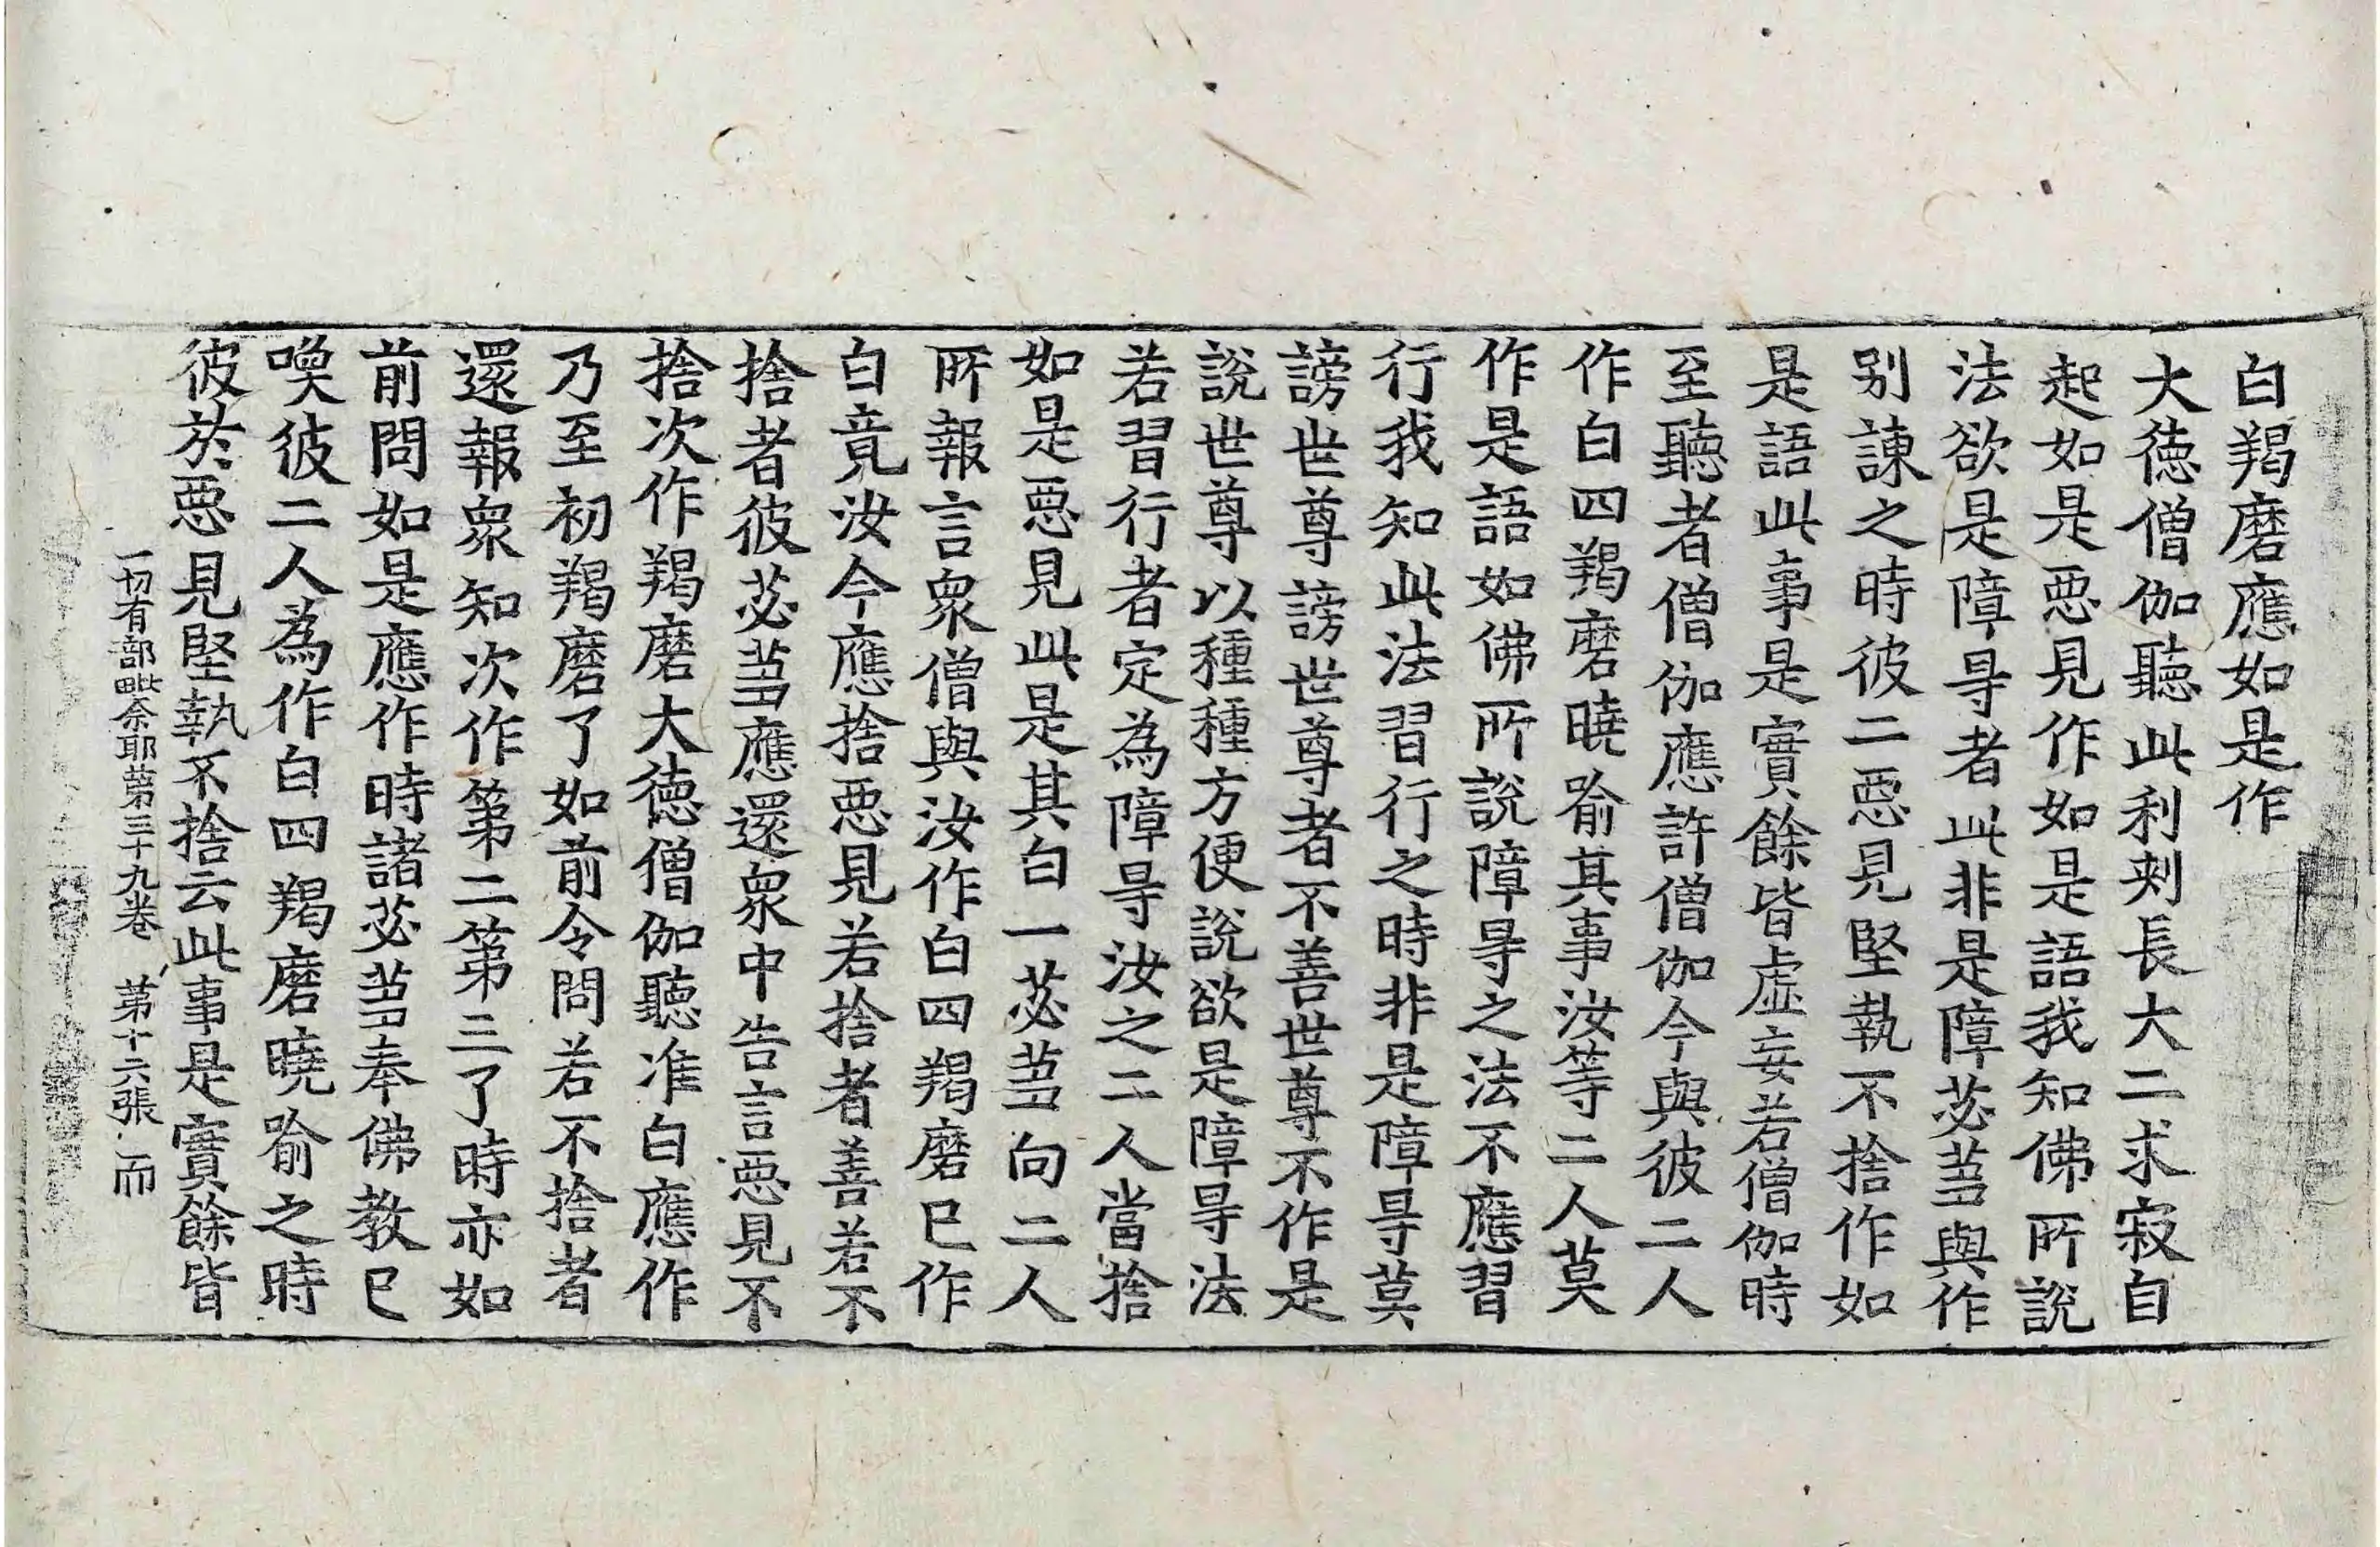 白羯磨應如是作
大徳僧伽聽此利剌長大二求寂自
起如是惡見作如是語我知佛所說
法欲是障㝵者此非是障苾芻與作
别諫之時彼二惡見堅執不捨作如
是語此事是實餘皆虛妄若僧伽時
至聽者僧伽應許僧伽今與彼二人
作白四羯磨曉喻其事汝等二人莫
作是語如佛所說障㝵之法不應習
行我知此法習行之時非是障㝵莫
謗世尊謗世尊者不善世尊不作是
說世尊以種種方便說欲是障㝵法
若習行者定為障㝵汝之二人當捨
如是惡見此是其白一苾芻向二人
所報言衆僧與汝作白四羯磨已作
白竟汝今應捨惡見若捨者善若不
捨者彼苾芻應還衆中告言惡見不
捨次作羯磨大徳僧伽聽准白應作
乃至初羯磨了如前令問若不捨者
還報衆知次作第二第三了時亦如
前問如是應作時諸苾芻奉佛教已
喚彼二人為作白四羯磨曉喻之時
彼於惡見堅執不捨云此事是實餘皆
一切有部毗奈耶第三十九卷 第十六張 而